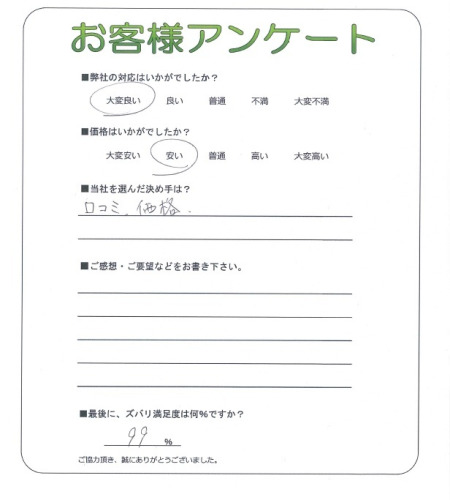 お客様アンケート
■弊社の対応はいかがでしたか？
大変良い 良い 普通 不満 大変不満
■価格はいかがでしたか？
大変安い 安い 普通 高い 大変高い
■当社を選んだ決め手は？
口コミ、価格．
■ご感想・ご要望などをお書き下さい。
■最後に、ズバリ満足度は何％ですか？
99 ％
ご協力頂き、誠にありがとうございました。